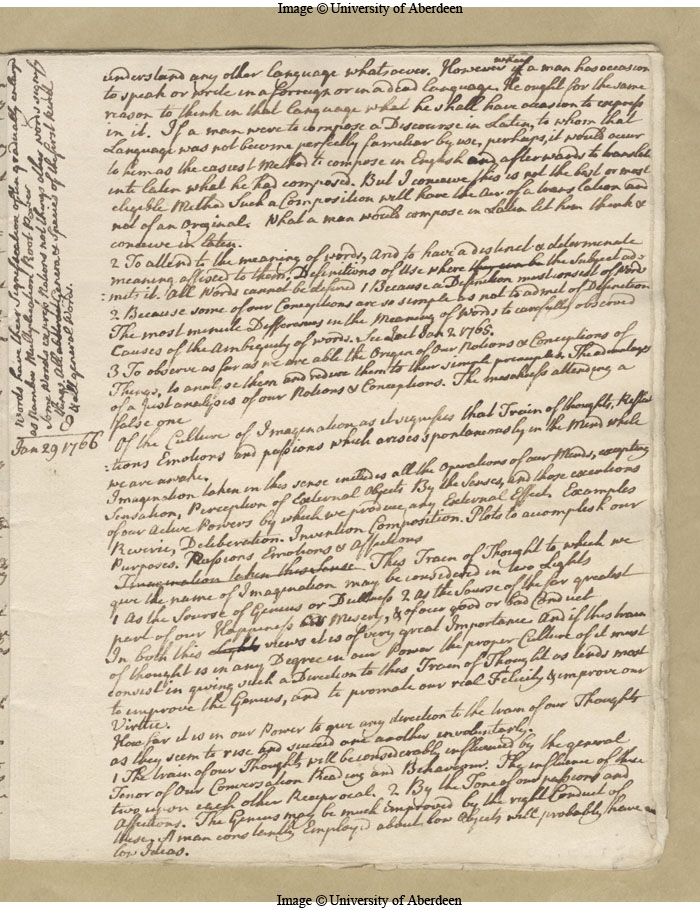 Image © University of Aberdeen
understand any other language whatsoever. However when if a man has occasion
to speak or write in a forreign or in a dead language. He ought for the same
reason to think in that language what he shall have occasion to express
in it. If a man were to compose a Discourse in Latin, to whom that
Language was not become perfectly familiar by use, perhaps, it would occur
to him as the easiest Method to compose in English and afterwards to translate
into laten what he had composed. But I conceive this is not the best or most
eligible Method Such a Composition will have the Air of a translation and
not of an Original. What a man would compose in Laten let him think &
conceive in laten.
2 To attend to the meaning of words, And to have a distinct & determinate
meaning affixed to them. Definitions of Use where they can be the Subject ad-
:mits it. All Words cannot be defined 1 Because a Definition must consist of Words
2 Because some of our Conceptions are so simple as not to admit of Definition
The most minute Differences in the Meaning of Words to carefully observed
Causes of the Ambiguity of words. See Lect Jan 2 1765.
3 To observe as far as we are able the Origin of Our Notions & Conceptions of
Things, to analyse them and reduce them to their simple The advantages
of a Just analysis of our Notions & Conceptions. The mischiefs attending a
false one
Words have their Signification often gradually enlarged
as Number Multiplication, Root Power
Some words express Notions not things other words signify
things. All Genera & Species of the first kind
& all general Words.
Jan 29 1766
Of the Culture of Imagination as it signifies that Train of thoughts, Reflec
:tions Emotions and passions which arises spontaneously in the Mind while
we are awake.
Imagination taken in this sense includes all the Operations of our Minds, excepting
Sensation, Perception of External Objects By the Senses, and those exertions
of our Active Powers by which we produce any External Effect. Examples
Reverie, Deliberation. Invention Composition. Plots to acomplish our
Purposes. Passions Emotions & Affections
Imagination taken this Sense This Train of Thought to, which we
give the name of Imagination may be considered in two Lights
1 As the Source of Genius or Dullness 2 as the Source of the far greatest
part of our Happiness or Misery, & of our good or bad Conduct
In both this Lights views it is of very great Importance And if this train
of thought is in any Degree in our Power the proper Culture of it must
consist in giving such a Direction to this Train of Thought as tends most
to improve the Genius, and to promote our real Felicity & improve our
Virtue.
How far it is in our Power to give any direction to the train of our Thoughts
as they seem to rise and succeed one another involuntarly.
1 The train of our Thoughts will be considerably influenced by the general
Tenor of Our Conversation Reading and Behaviour. The influence of these
two upon each other Reciprocal. 2 By the Tone of our passions and
Affections. The Genius may be much Improved by the right Conduct of
these. A man constantly Employed about low Objects will probably have
low Ideas.
Image © University of Aberdeen